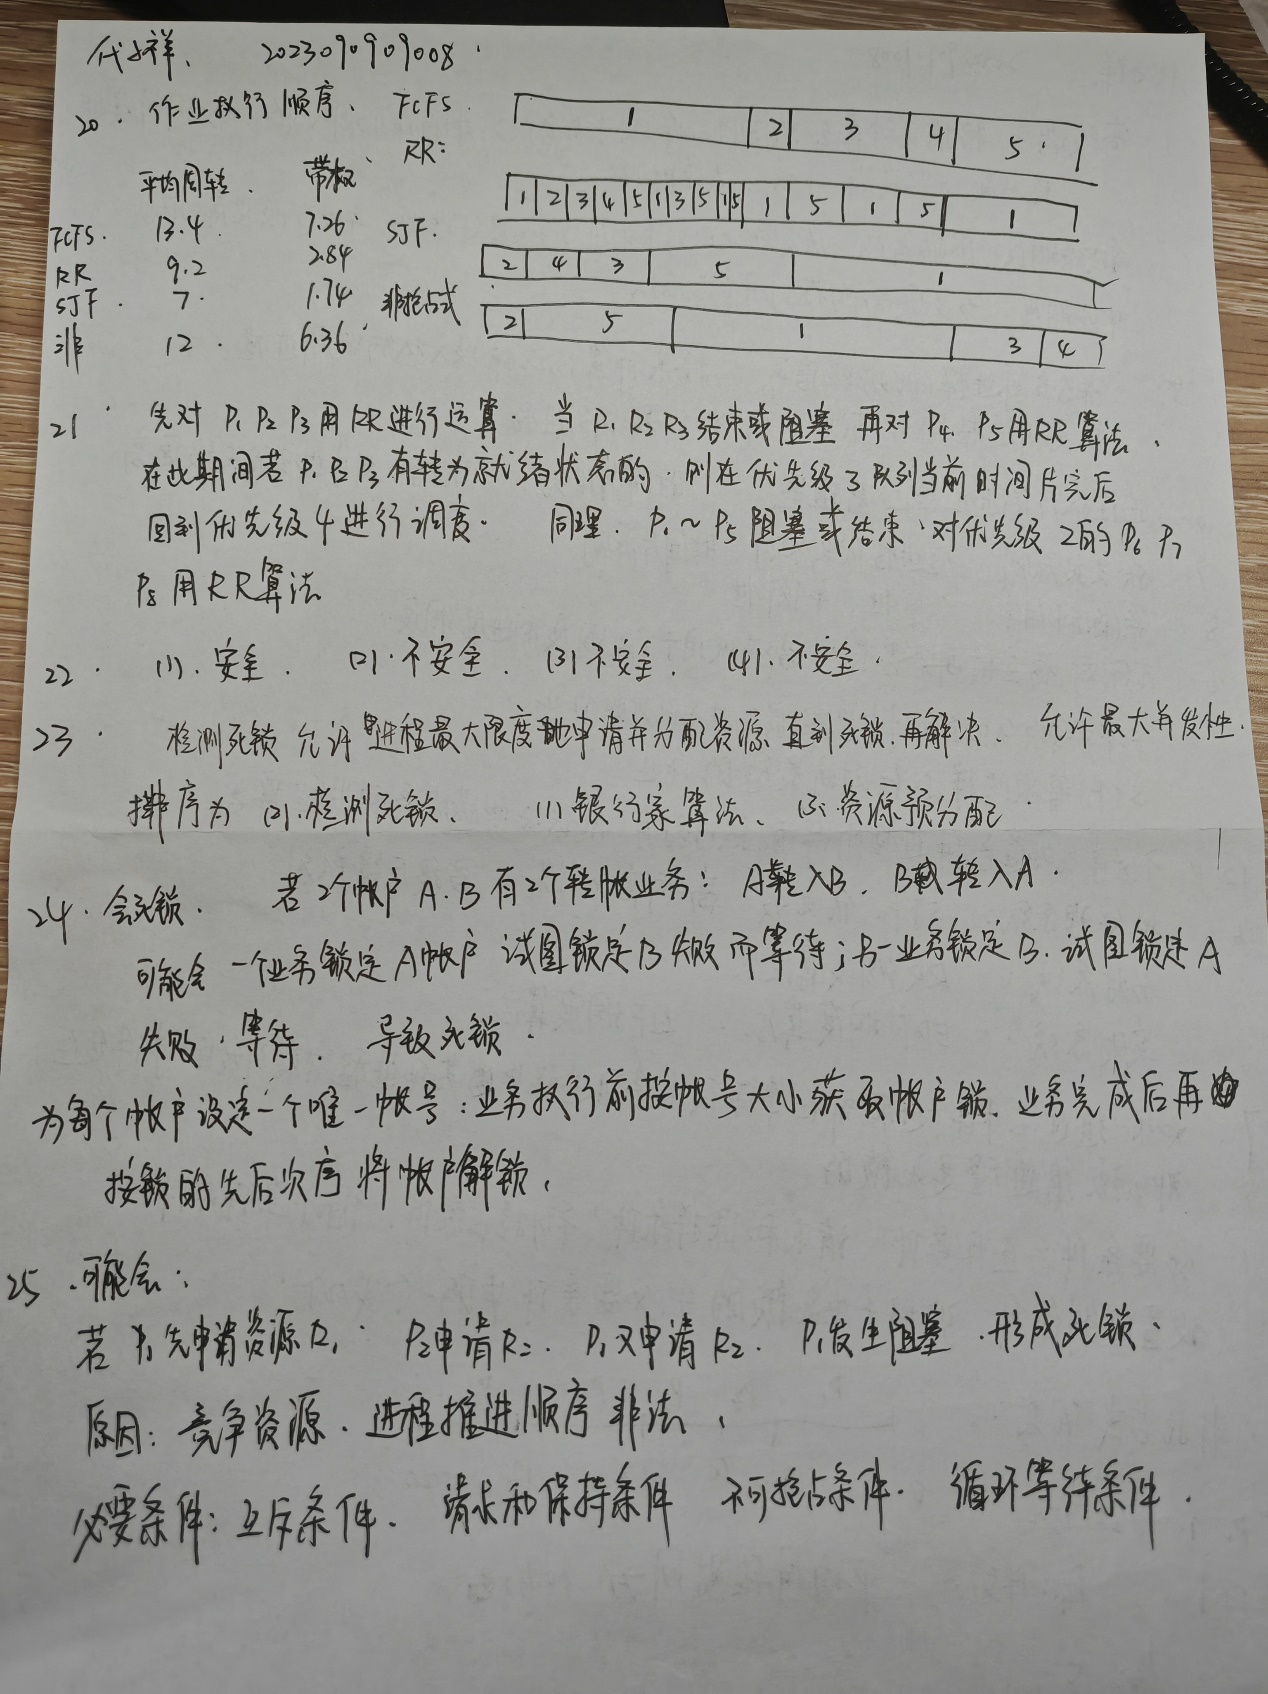 代祥. 2023090909008.
20. 作业执行顺序. FCFS. 1 2 3 4 5
平均周转. 带权 RR: 1 2 3 4 5 1 3 5 1 5 1 5 1 5 1
FCFS. 13.4 7.26 SJF. 2 4 3 5 1
RR 9.2 2.84
SJF. 7. 1.74 非抢占式 2 5 1 3 4
非 12. 6.36
21 先对 P1 P2 P3 用RR进行运算. 当 P1 P2 P3 结束或阻塞 再对 P4 P5用RR算法.
在此期间若 P1 P2 P3 有转为就绪状态的. 则在优先级3队列当前时间片完后
回到优先级4进行调度. 同理. P1~P5 阻塞或结束,对优先级2的 P6 P7
P8 用RR算法
22. (1). 安全. (2). 不安全. (3) 不安全. (4). 不安全.
23. 检测死锁 允许进程最大限度地申请并分配资源 直到死锁.再解决. 允许最大并发性.
排序为 (2).检测死锁. (1) 银行家算法. (3).资源预分配.
24. 会死锁. 若2个帐户 A.B 有2个转账业务: A转入B. B转入A.
可能会 一个业务锁定 A帐户 试图锁定B失败 而等待;另一业务锁定B. 试图锁定A
失败. 等待. 导致死锁.
为每个帐户设定一个唯一帐号:业务执行前按帐号大小获取帐户锁. 业务完成后再
按锁的先后次序将帐户解锁.
25. 可能会:
若 P1先申请资源R1. P2申请R2. P1又申请R2. P1发生阻塞.形成死锁.
原因: 竞争资源. 进程推进顺序非法.
必要条件: 互斥条件. 请求和保持条件 不可抢占条件. 循环等待条件.